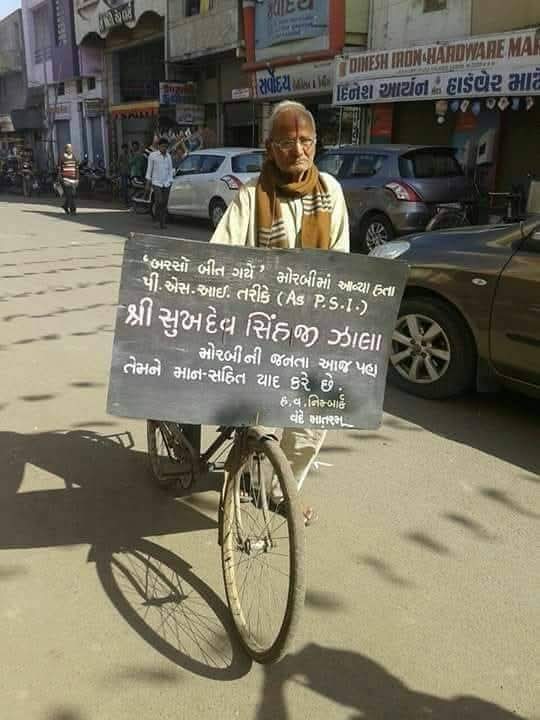 DINESH IRON & HARDWARE MAR
દિનેશ આયર્ન એન્ડ હાર્ડવેર માર્
સર્વોદય
'બરસોં બીત ગયેં' મોરબીમાં આવ્યા હતા
પી.એસ.આઈ. તરીકે (As P.S.I.)
શ્રી સુખદેવ સિંહજી ઝાલા
મોરબીની જનતા આજ પણ
તેમને માન-સહિત યાદ કરે છે.
હ.વ.નિમ્બાર્ક
વંદે માતરમ્